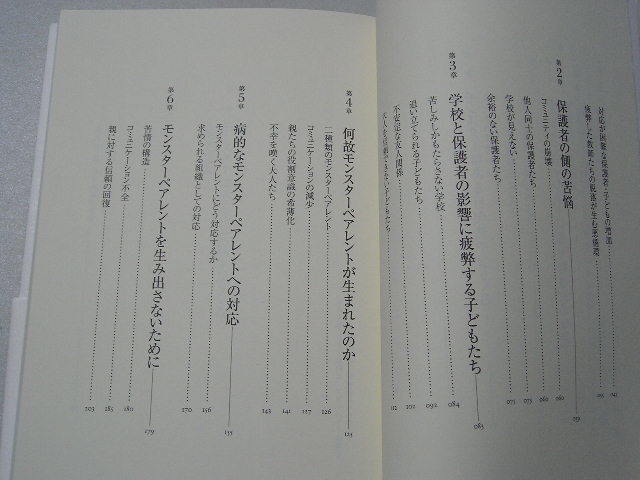 対応が困難な保護者・子どもの増加
疲弊した教師たちの脱落が生む悪循環
第2章 保護者の側の苦悩 059
コミュニティの崩壊 060
他人同士の保護者たち
学校が見えない 073
余裕のない保護者たち
第3章 学校と保護者の影響に疲弊する子どもたち 083
苦しみしかもたらさない学校 084
追い立てられる子どもたち 092
不安定な友人関係 102
子どもたち 112
第4章 何故モンスターペアレントが生まれたのか 125
二種類のモンスターペアレント 126
コミュニケーションの減少 127
親たちの役割意識の希薄化 141
不幸を嘆く大人たち 143
第5章 病的なモンスターペアレントへの対応 155
モンスターペアレントにどう対応するか 156
求められる組織としての対応 170
第6章 モンスターペアレントを生み出さないために 179
苦情の構造 180
コミュニケーション不全 185
親に対する信頼の回復 203